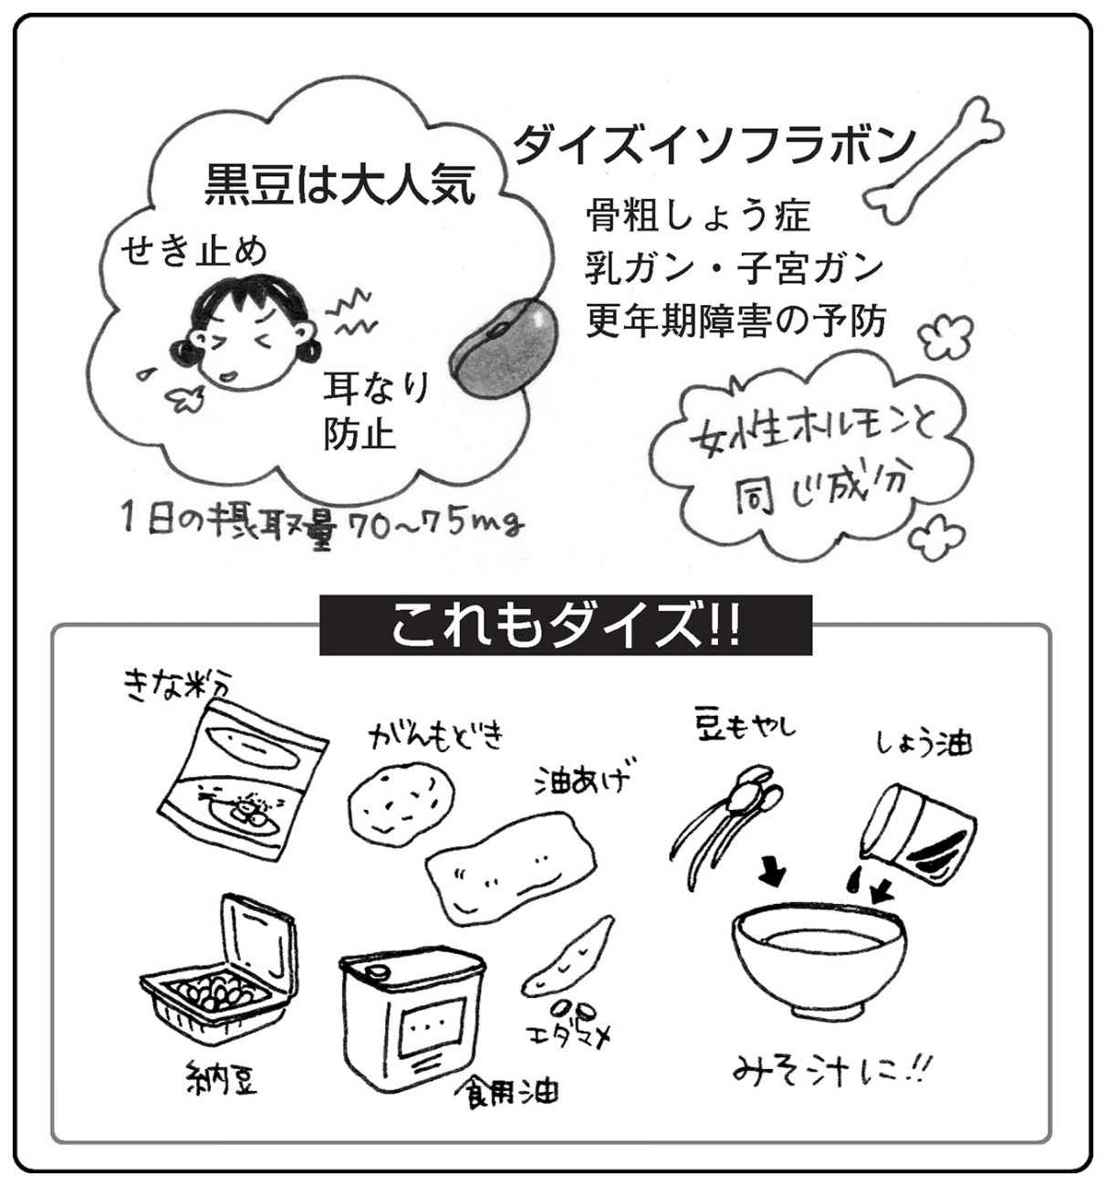 黒豆は大人気
せき止め
耳なり
防止
1日の摂取量70〜75mg
ダイズイソフラボン
骨粗しょう症
乳ガン・子宮ガン
更年期障害の予防
女性ホルモンと
同じ成分
これもダイズ!!
きな粉
がんもどき
油あげ
豆もやし
しょう油
納豆
食用油
エダマメ
みそ汁に!!